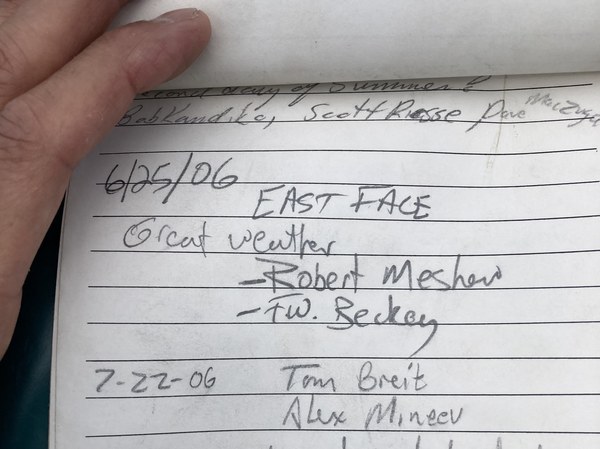 day of Summer!
Bob Kandiko, Scott Riesse Dave
6/25/06
EAST FACE
Great weather
- Robert Meshew
- F.W. Beckey
7-22-06 Tom Breit
Alex Mineev